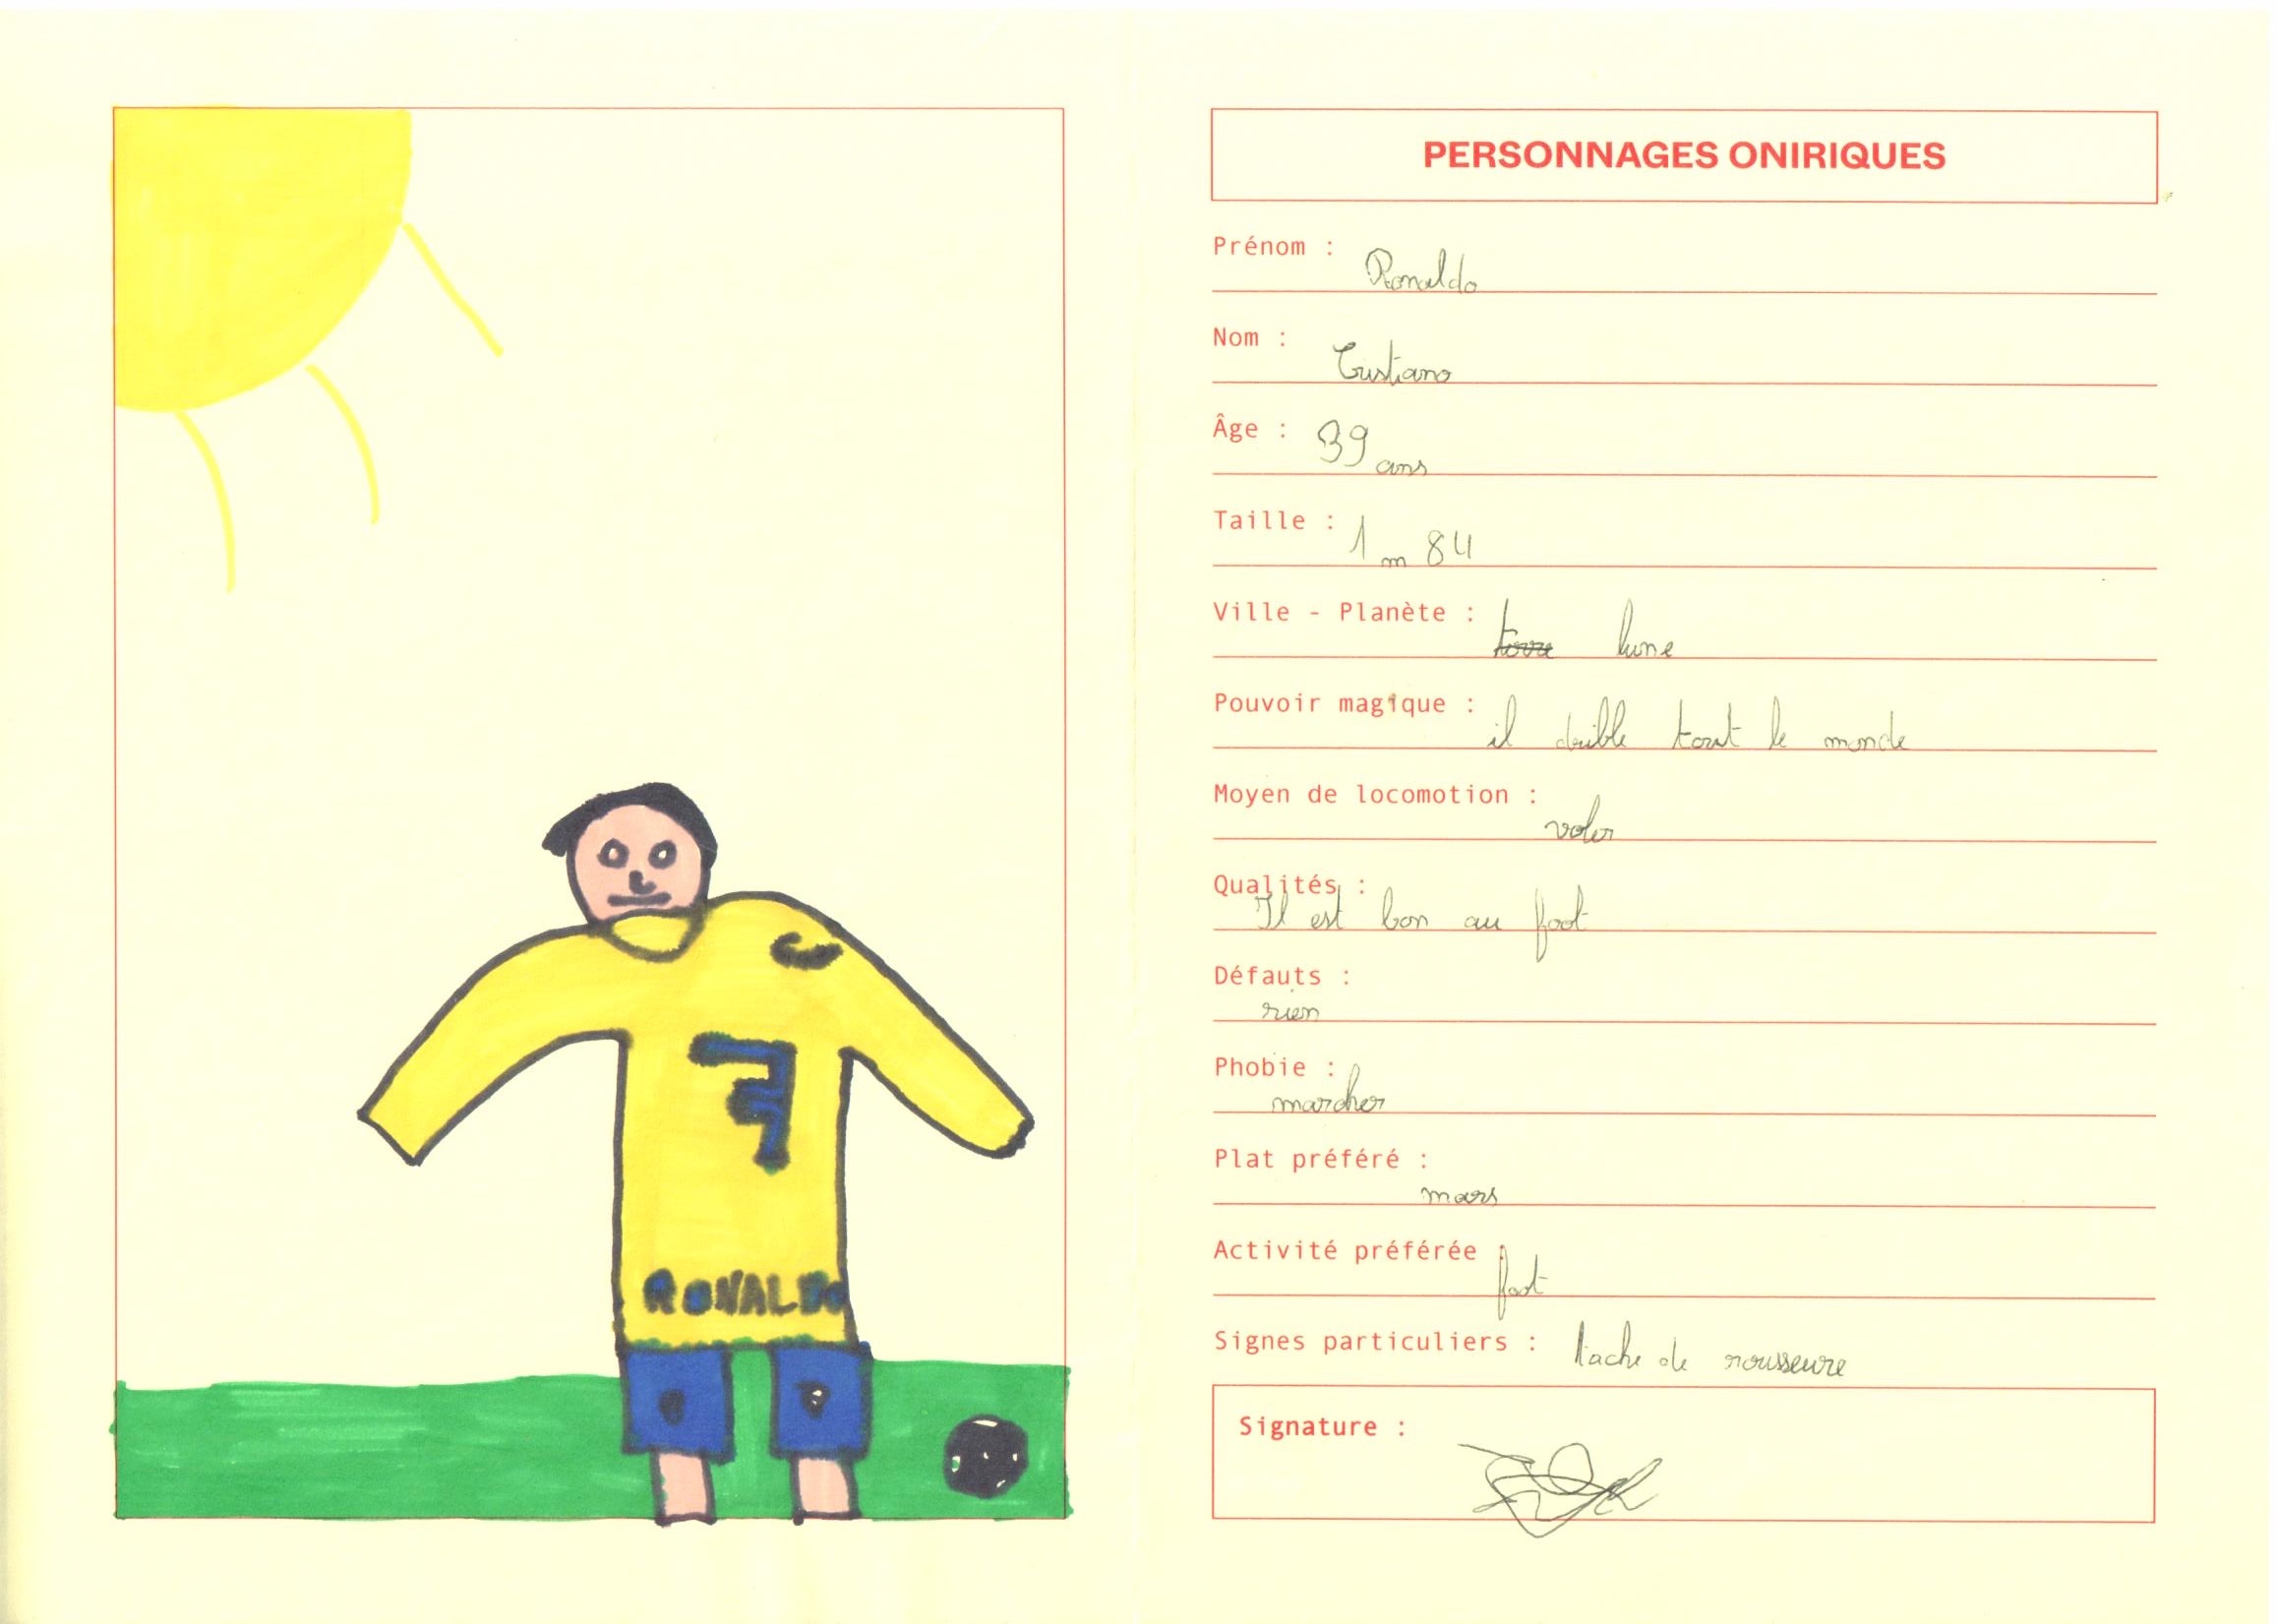 PERSONNAGES ONIRIQUES
Prénom : Ronaldo
Nom : Cristiano
Âge : 39 ans
Taille : 1 m 84
Ville - Planète : terre lune
Pouvoir magique : il drible tout le monde
Moyen de locomotion : voler
Qualités : Il est bon au foot
Défauts : rien
Phobie : marcher
Plat préféré : mars
Activité préférée foot
Signes particuliers : tache de rousseure
Signature :
7
RONALDO